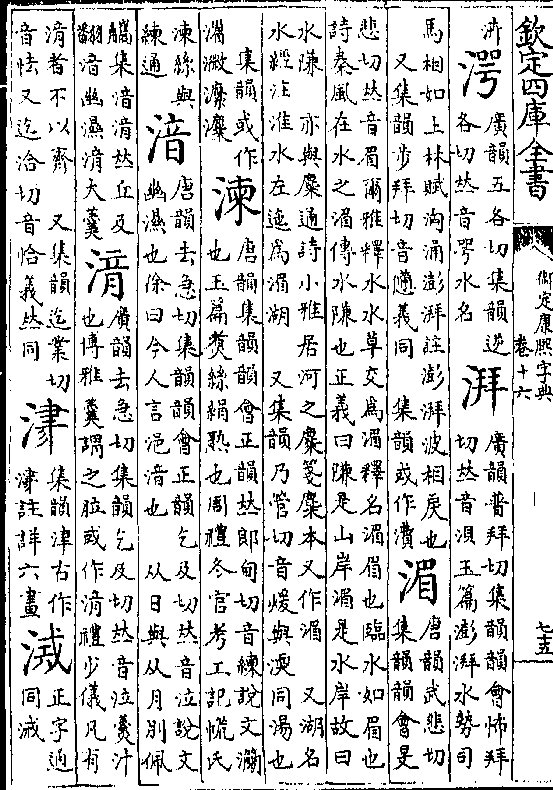 欽定四庫全書
御定康熙字典
卷十六
七五
湂
廣韻五各切集韻逆
各切𠀤音咢水名
湃
廣韻普拜切集韻韻會怖拜
切𠀤音浿玉篇澎湃水勢司
馬相如上林賦洶涌澎湃註澎湃波相戾也
又集韻步拜切音𢞪義同 集韻或作㵒
湄
唐韻武悲切
集韻韻會旻
悲切𠀤音眉爾雅釋水水草交爲湄釋名湄眉也臨水如眉也
詩秦風在水之湄傳水隒也正義曰隒是山岸湄是水岸故曰
水隒 亦與麋通詩小雅居河之麋箋麋本又作湄 又湖名
水經注淮水左迆爲湄湖 又集韻乃管切音煖與渜同湯也
集韻或作
湅
唐韻集韻韻會正韻𠀤郎甸切音練說文㶕
也玉篇煑絲絹熟也周禮冬官考工記㡛氏
湅絲與
練通
湆
唐韻去急切集韻韻會正韻乞及切𠀤音泣說文
幽濕也徐曰今人言浥湆也 从日與从月別佩
觿集湆湇𠀤丘及
翻湆幽濕湇大羹
湇
廣韻去急切集韻乞及切𠀤音泣羹汁
也博雅羹謂之或作湇禮少儀凡有
湇者不以齊 又集韻迄業切
音怯又迄洽切音恰義𠀤同
集韻津古作
註詳六畫
正字通
同減